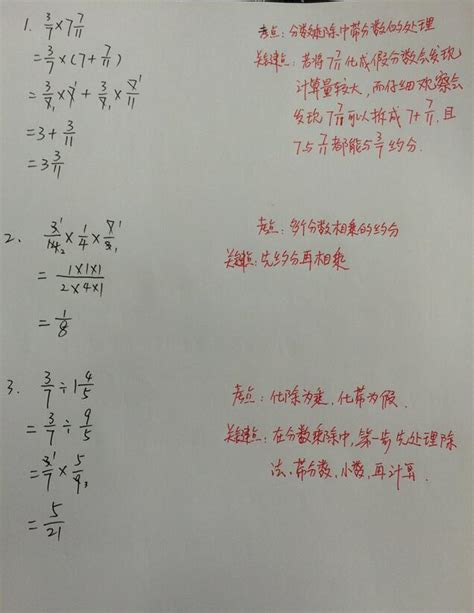 1. 3/7×7 7/11
=3/7×(7+7/11)
=3/7₁×7¹+3/7₁×7¹/11
=3+3/11
=3 3/11
考点:分数乘除中带分数的处理
关键点:若将7 7/11化成假分数会发现
计算量较大,而仔细观察会
发现7 7/11可以拆成7+7/11,且
7与7/11都能与3/7约分.
2. 3¹/14₂×1/4×7¹/3₁
=1×1×1/2×4×1
=1/8
考点:多个分数相乘的约分
关键点:先约分再相乘
3. 3/7÷1 4/5
=3/7÷9/5
=3¹/7×5/9₃
=5/21
考点:化除为乘,化带为假.
关键点:在分数乘除中,第一步先处理除
法、带分数、小数,再计算.